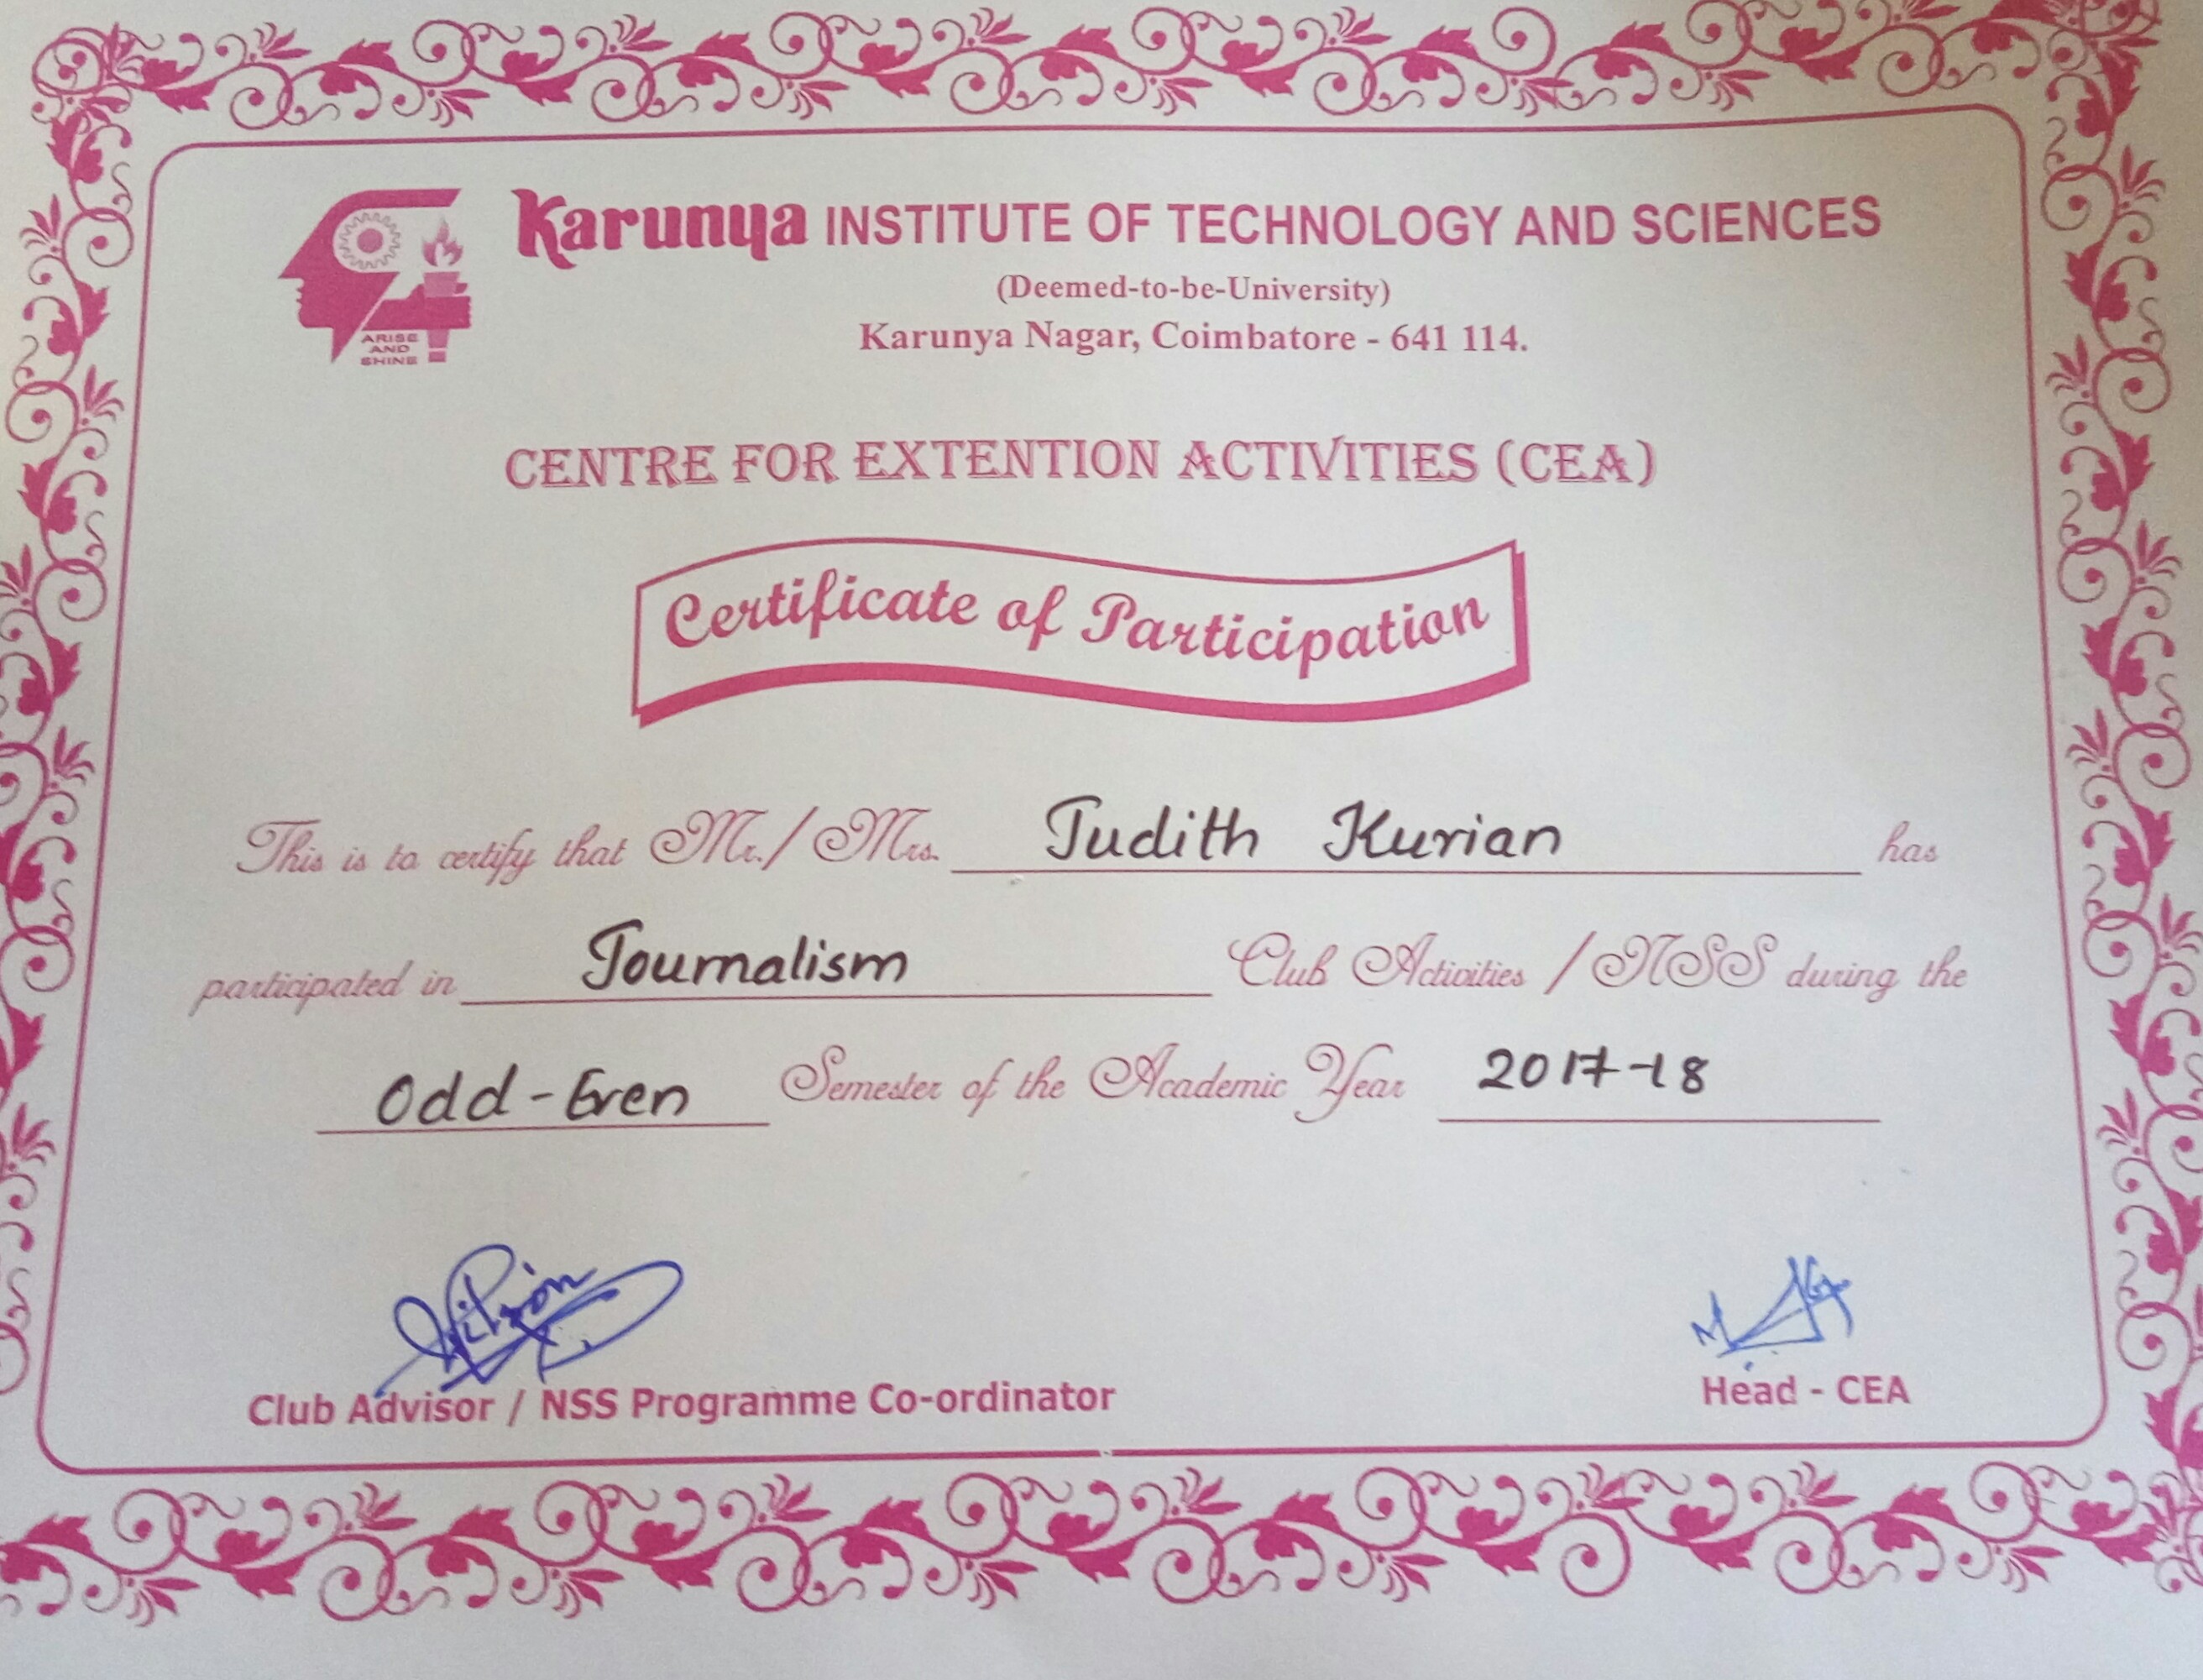 Karunya INSTITUTE OF TECHNOLOGY AND SCIENCES
(Deemed-to-be-University)
Karunya Nagar, Coimbatore - 641 114.
ARISE
AND
SHINE
CENTRE FOR EXTENTION ACTIVITIES (CEA)
Certificate of Participation
This is to certify that Mr./Mrs. Judith Kurian has
participated in Journalism Club Activities / NSS during the
Odd-Even Semester of the Academic Year 2017-18
Club Advisor / NSS Programme Co-ordinator
Head - CEA